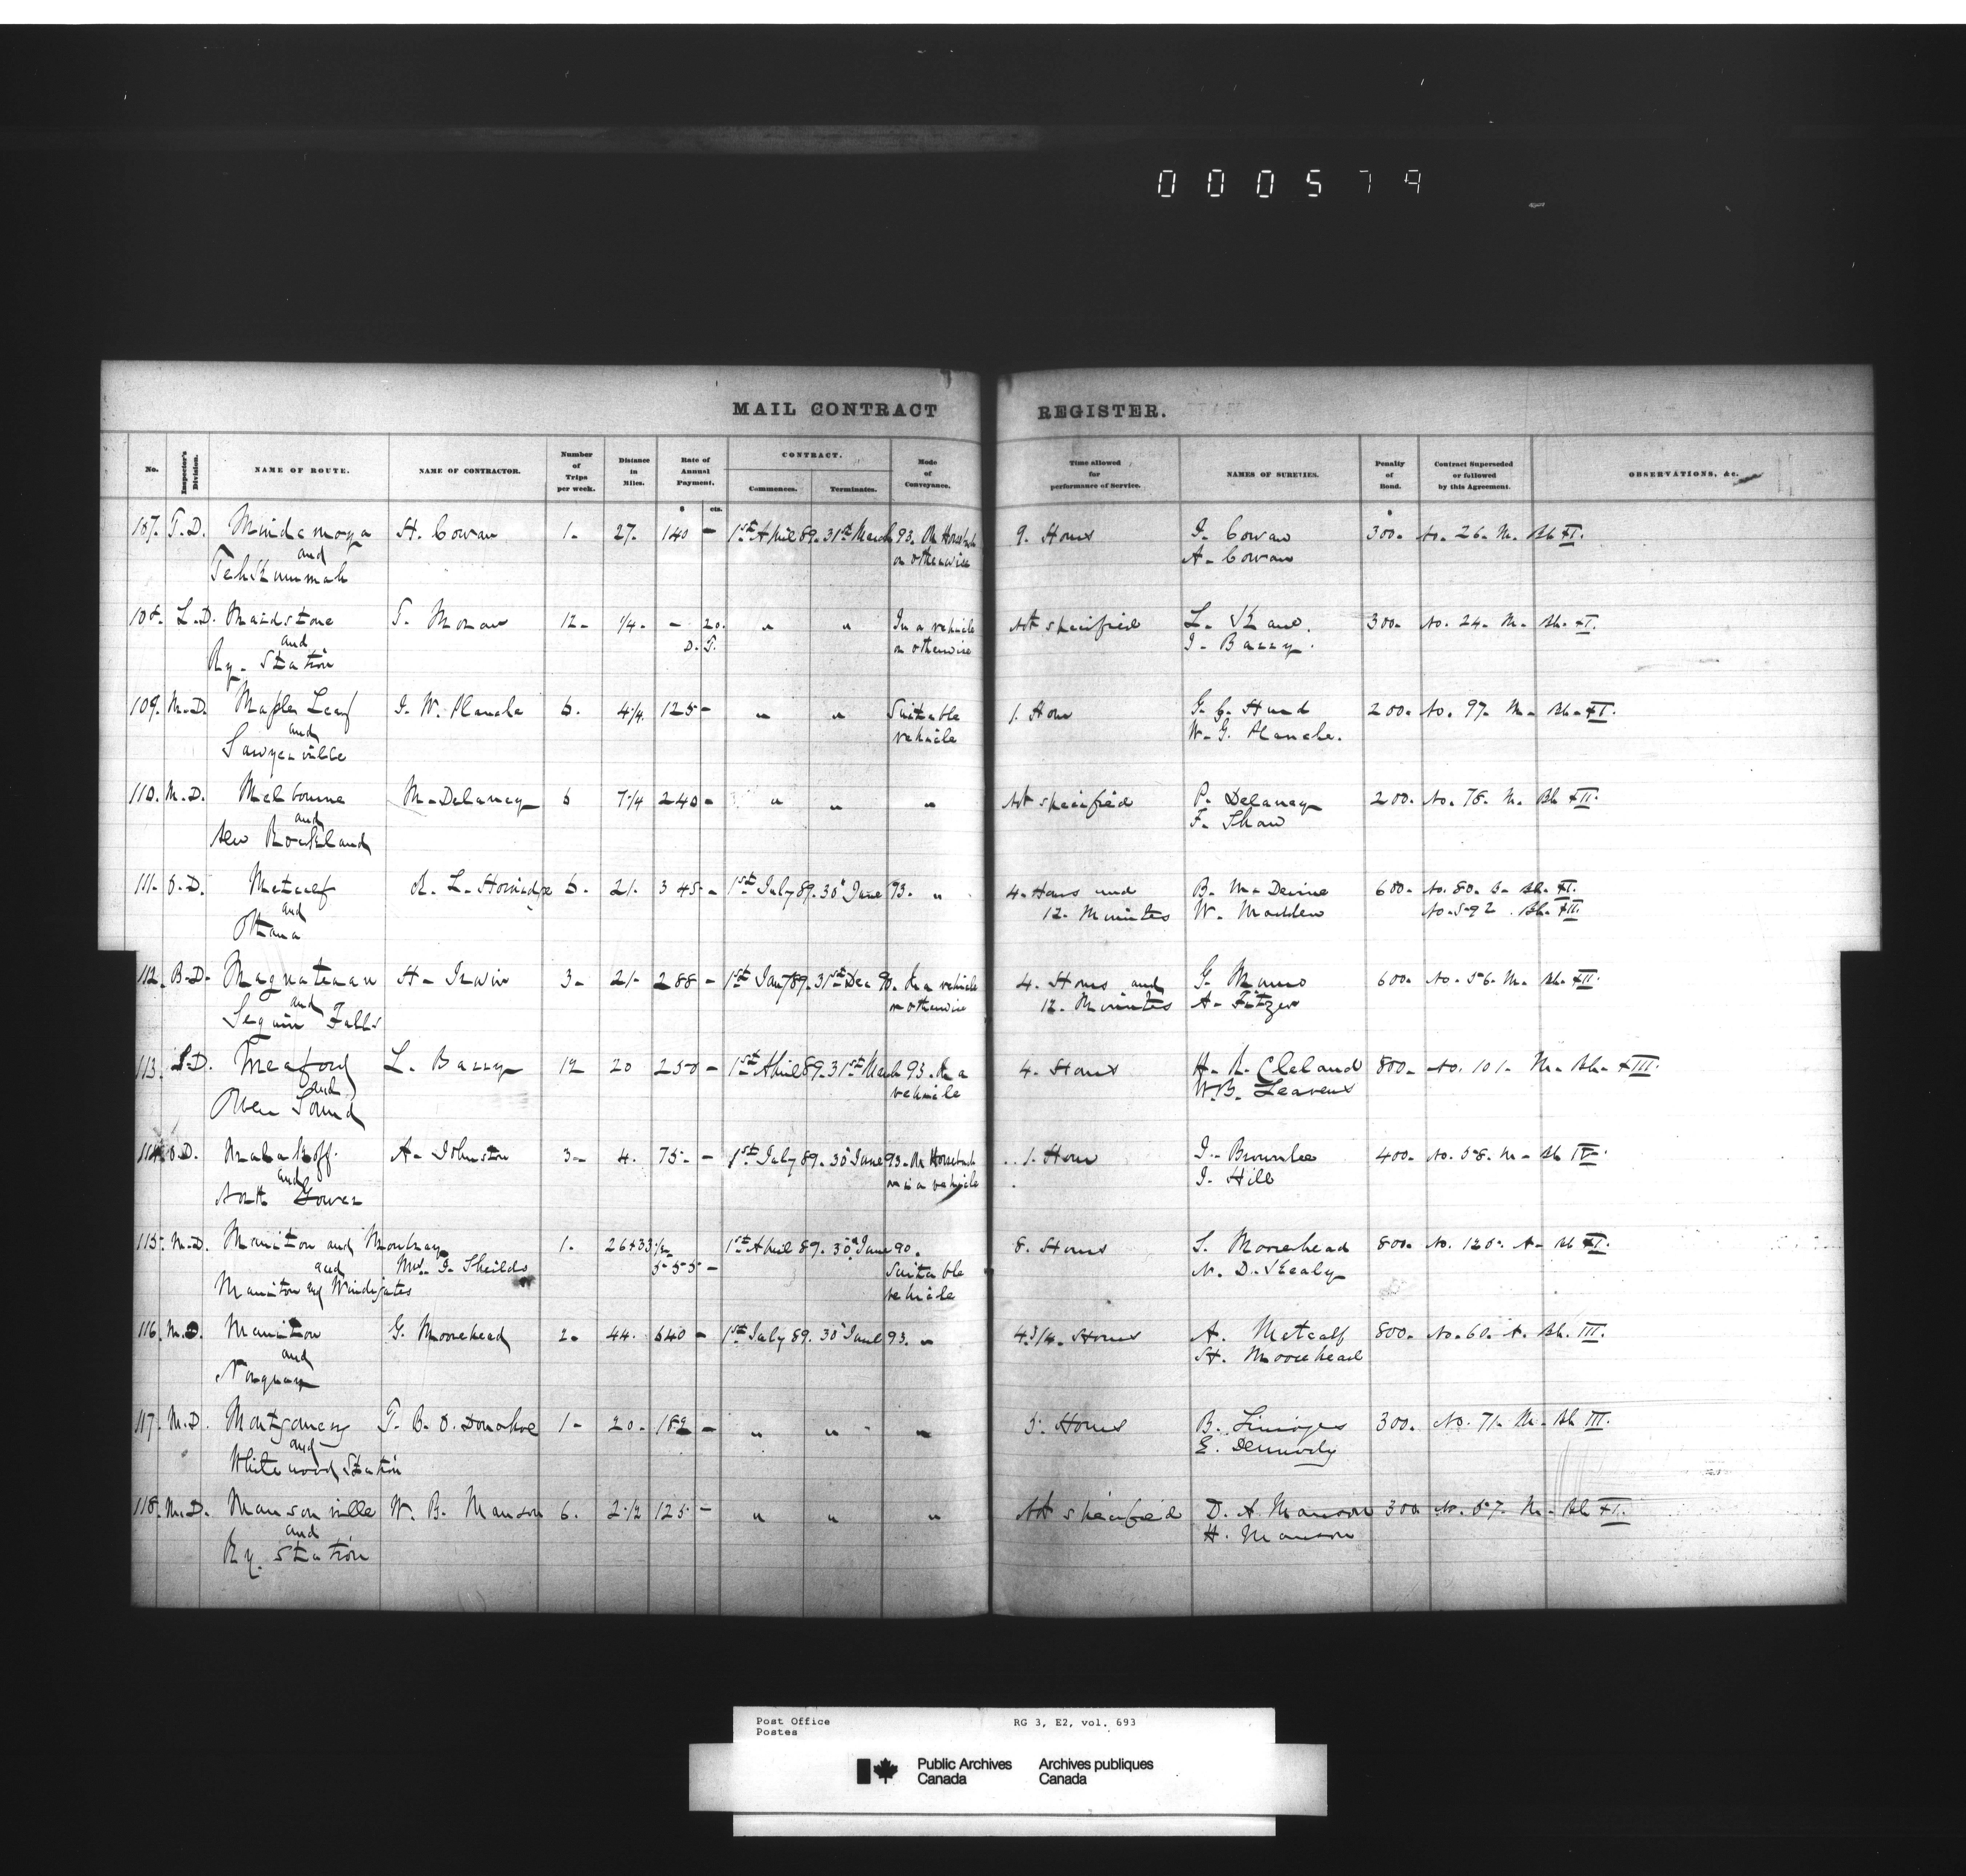 000579
MAIL CONTRACT REGISTER.
No. Inspector's Division. NAME OF ROUTE. NAME OF CONTRACTOR. Number of Trips per week. Distance in Miles. Rate of Annual Payment. CONTRACT. Commences. Terminates. Mode of Conveyance. Time allowed for performance of Service. NAMES OF SURETIES. Penalty of Bond. Contract Superseded or followed by this Agreement. OBSERVATIONS, &c.
$ cts.
107. T.D. Mindemoya H. Cowan 1- 27. 140 - 1st April 89. 31st March 93. On Horseback 9. Hours J. Cowan 300- No. 26. M. Bk XI.
and or otherwise A. Cowan
Tehkummah
108. L.D. Maidstone T. Moran 12- 1/4- - 20. " " In a vehicle Not specified L. 300- No. 24. M. Bk. XI.
and D. T. or otherwise J. Barry.
Ry. Station
109. M.D. Maple Leaf J. W. Planche 6. 4 1/4. 125- " " Suitable 1. Hour G. G. Hurd 200. No. 97. M. Bk. XI.
and vehicle W. G. Planche.
Sawyerville
110. M.D. Melbourne M. Delaney 6 7 1/4 240- " " " Not specified P. Delaney 200. No. 78. M. Bk XII.
and F. Shaw
New Rockland
111. O.D. Metcalf A. L. 6. 21. 345- 1st July 89. 30th June 93. " 4. Hours and B. McDevine 600- No. 80. Bk. XI.
and 12. Minutes W. Madden No. 592. Bk. XII
Ottawa
112. B.D. Magnatewan H. Irwin 3- 21. 288- 1st Jany 89. 31st Dec 90. In a vehicle 4. Hours and G. 600- No. 56. M. Bk. XII.
and or otherwise 12. Minutes A. Fitzer
Seguin Falls
113. S.D. Meaford L. Barry 12 20 250- 1st April 89. 31st March 93. In a 4. Hours H. R. Cleland 800- No. 101. M. Bk. XIII.
and vehicle W. B.
Owen Sound
114. O.D. Malakoff. A. Johnston 3- 4. 75- - 1st July 89. 30th June 93. On Horseback 1. Hour J. Brownlee 400- No. 58. M. Bk IV.
and or in a vehicle J. Hill
North Gower
115. M.D. Manitou and 1. 26+33 1/2 1st April 89. 30th June 90. 8. Hours S. Moorehead 800- No. 120. A. Bk XI.
and Mrs. J. Shields 555- Suitable N. D.
Manitou and Windygates vehicle
116. M.D. Manitou G. Moorehead 2. 44. 640- 1st July 89. 30th June 93. " 4 3/4. Hours A. Metcalf 800- No. 60. A. Bk. III.
and H. Moorehead
Norquay
117. M.D. Montgomery T. B. O. Donohoe 1- 20. 182- " " " 5. Hours B. Limoges 300. No. 71. M. Bk III.
and E.
Whitewood Station
118. M.D. Mansonville W. B. Manson 6. 2 1/2 125- " " " Not specified D. A. Manson 300 No. 57. M. Bk XI.
and H. Manson
Ry. Station
Post Office RG 3, E2, vol. 693
Postes
Public Archives Archives publiques
Canada Canada